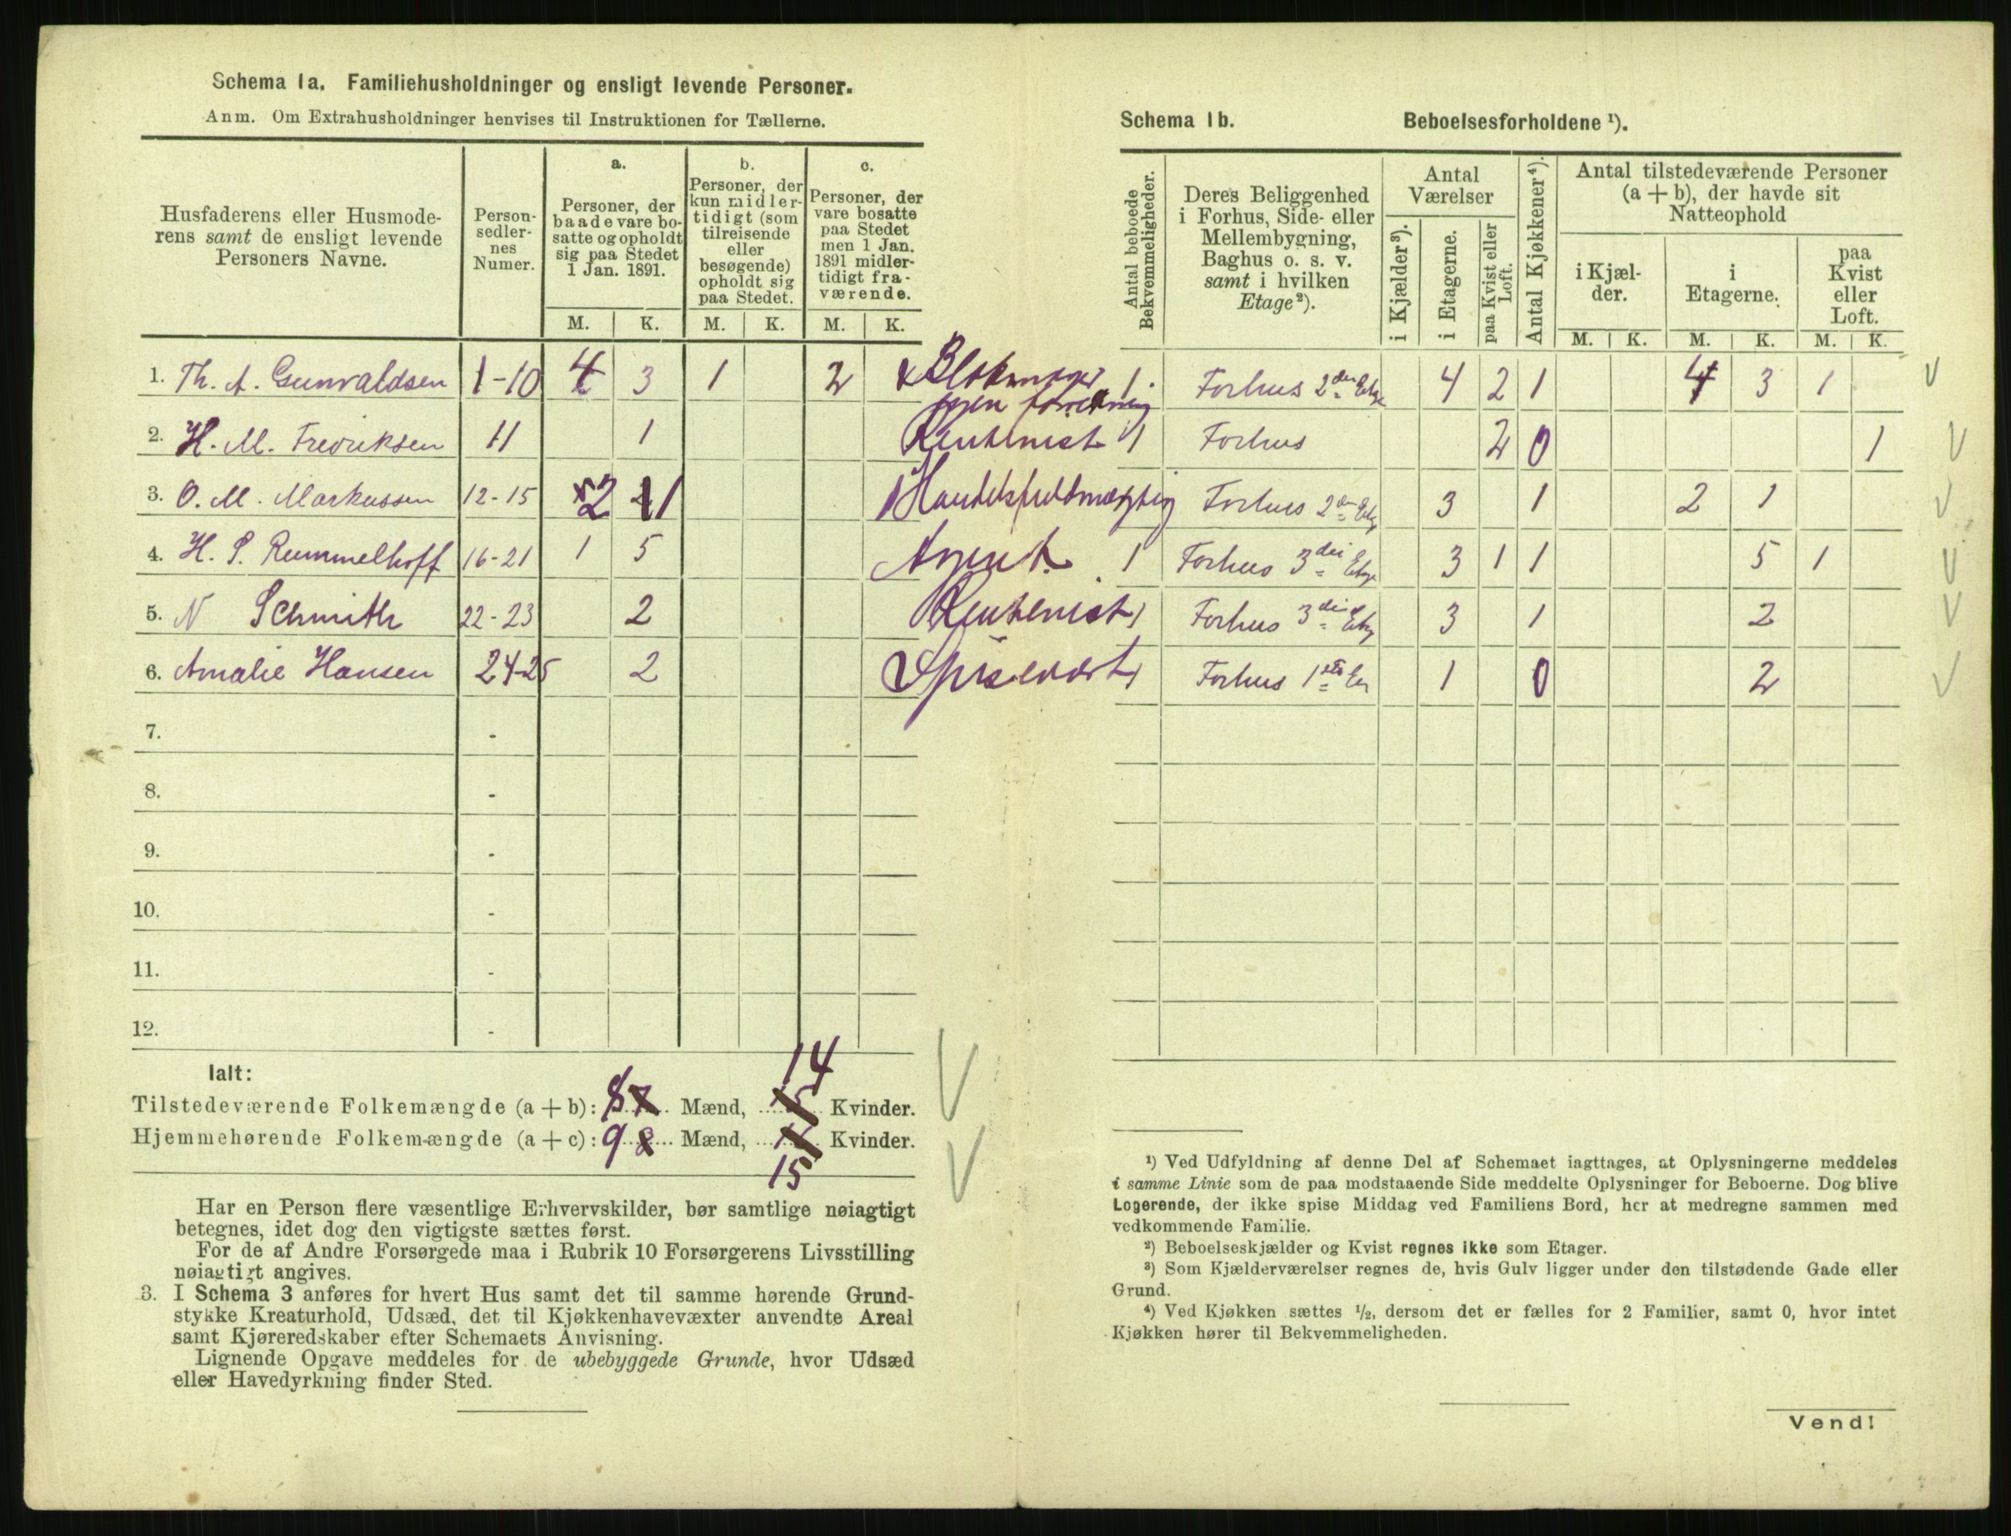 Schema 1a. Familiehusholdninger og ensligt levende Personer.
Anm. Om Extrahusholdninger henvises til Instruktionen for Tællerne.
Husfaderens eller Husmoderens samt de ensligt levende Personers Navne.
Personsedlernes Numer.
a. Personer, der baade vare bosatte og opholdt sig paa Stedet 1 Jan. 1891.
b. Personer, der kun midlertidigt (som tilreisende eller besøgende) opholdt sig paa Stedet.
c. Personer, der vare bosatte paa Stedet men 1 Jan. 1891 midlertidigt fraværende.
M. K. M. K. M. K.
1. Th. A. Gunvaldsen 1-10 4 3 1 2
2. H. M. Fredriksen 11 1 Rentenist
3. O. M. Markussen 12-15 2 1
4. H. S. Rummelhoff 16-21 1 5 Agent
5. N Schmith 22-23 2 Rentenist
6. Amalie Hansen 24-25 2 Spisevært
7. -
8. -
9. -
10. -
11. -
12. -
Ialt:
14
Tilstedeværende Folkemængde (a + b): 8 Mænd, Kvinder.
Hjemmehørende Folkemængde (a + c): 9 Mænd, Kvinder.
15
Har en Person flere væsentlige Erhvervskilder, bør samtlige nøiagtigt
betegnes, idet dog den vigtigste sættes først.
For de af Andre Forsørgede maa i Rubrik 10 Forsørgerens Livsstilling
nøiagtigt angives.
3. I Schema 3 anføres for hvert Hus samt det til samme hørende Grund-
stykke Kreaturhold, Udsæd, det til Kjøkkenhavevæxter anvendte Areal
samt Kjøreredskaber efter Schemaets Anvisning.
Lignende Opgave meddeles for de ubebyggede Grunde, hvor Udsæd
eller Havedyrkning finder Sted.
Schema 1b. Beboelsesforholdene ¹).
Antal beboede Bekvemmeligheder.
Deres Beliggenhed i Forhus, Side- eller Mellembygning, Baghus o. s. v. samt i hvilken Etage ²).
Antal Værelser
i Kjælder ³).
i Etagerne.
paa Kvist eller Loft.
Antal Kjøkkener ⁴).
Antal tilstedeværende Personer (a + b), der havde sit Natteophold
i Kjælder.
i Etagerne.
paa Kvist eller Loft.
M. K. M. K. M. K.
1. Forhus 2den Etage 4 2 1 4 3 1
1 Forhus 2 0 1
1 Forhus 2den Etg 3 1 2 1
1 Forhus 3die Etage 3 1 1 5 1
1 Forhus 3die Etg 3 1 2
1 Forhus 1ste Et 1 0 2
¹) Ved Udfyldning af denne Del af Schemaet iagttages, at Oplysningerne meddeles
i samme Linie som de paa modstaaende Side meddelte Oplysninger for Beboerne. Dog blive
Logerende, der ikke spise Middag ved Familiens Bord, her at medregne sammen med
vedkommende Familie.
²) Beboelseskjælder og Kvist regnes ikke som Etager.
³) Som Kjælderværelser regnes de, hvis Gulv ligger under den tilstødende Gade eller
Grund.
⁴) Ved Kjøkken sættes ½, dersom det er fælles for 2 Familier, samt 0, hvor intet
Kjøkken hører til Bekvemmeligheden.
Vend!